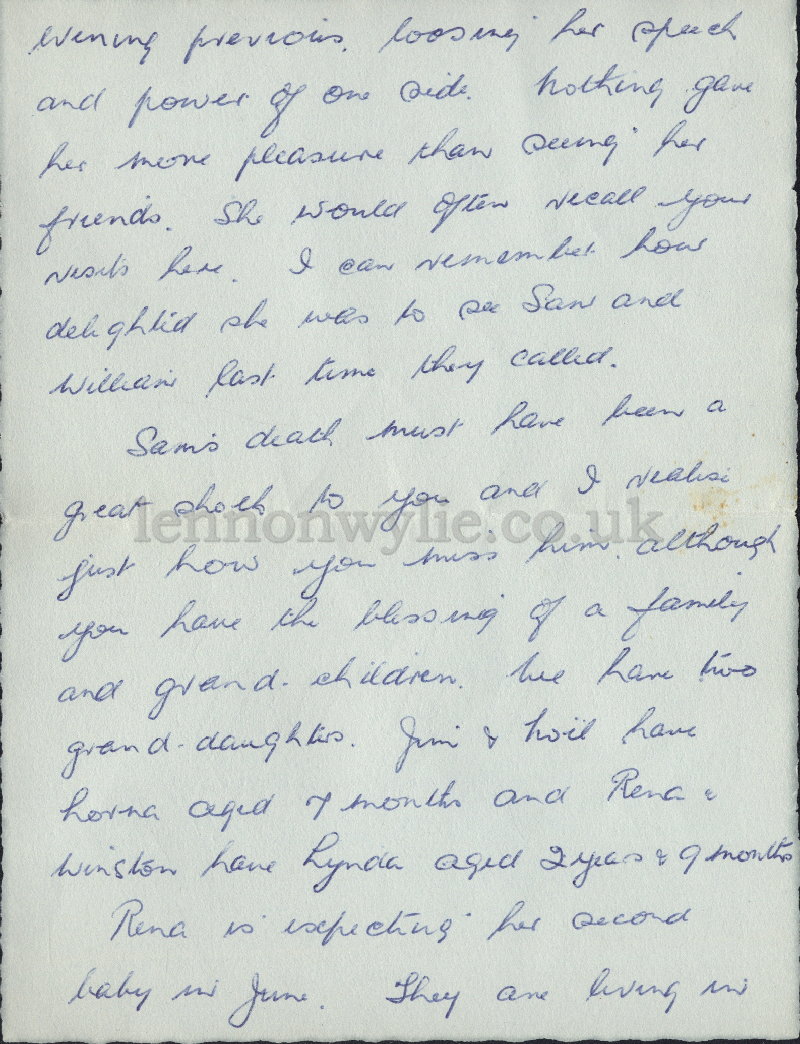 evening previous, loosing her speech
and power of one side. Nothing gave
her more pleasure than seeing her
friends. She would often recall your
visits here. I can remember how
delighted she was to see Sam and
William last time they called.
Sam's death must have been a
great shock to you and I realise
lennonwylie.co.uk
just how you miss him. although
you have the blessing of a family
and grand-children. We have two
grand-daughters. Jim & Noël have
Lorna aged 7 months and Rena &
Winston have Lynda aged 2 years & 9 months
Rena is expecting her second
baby in June. They are living in